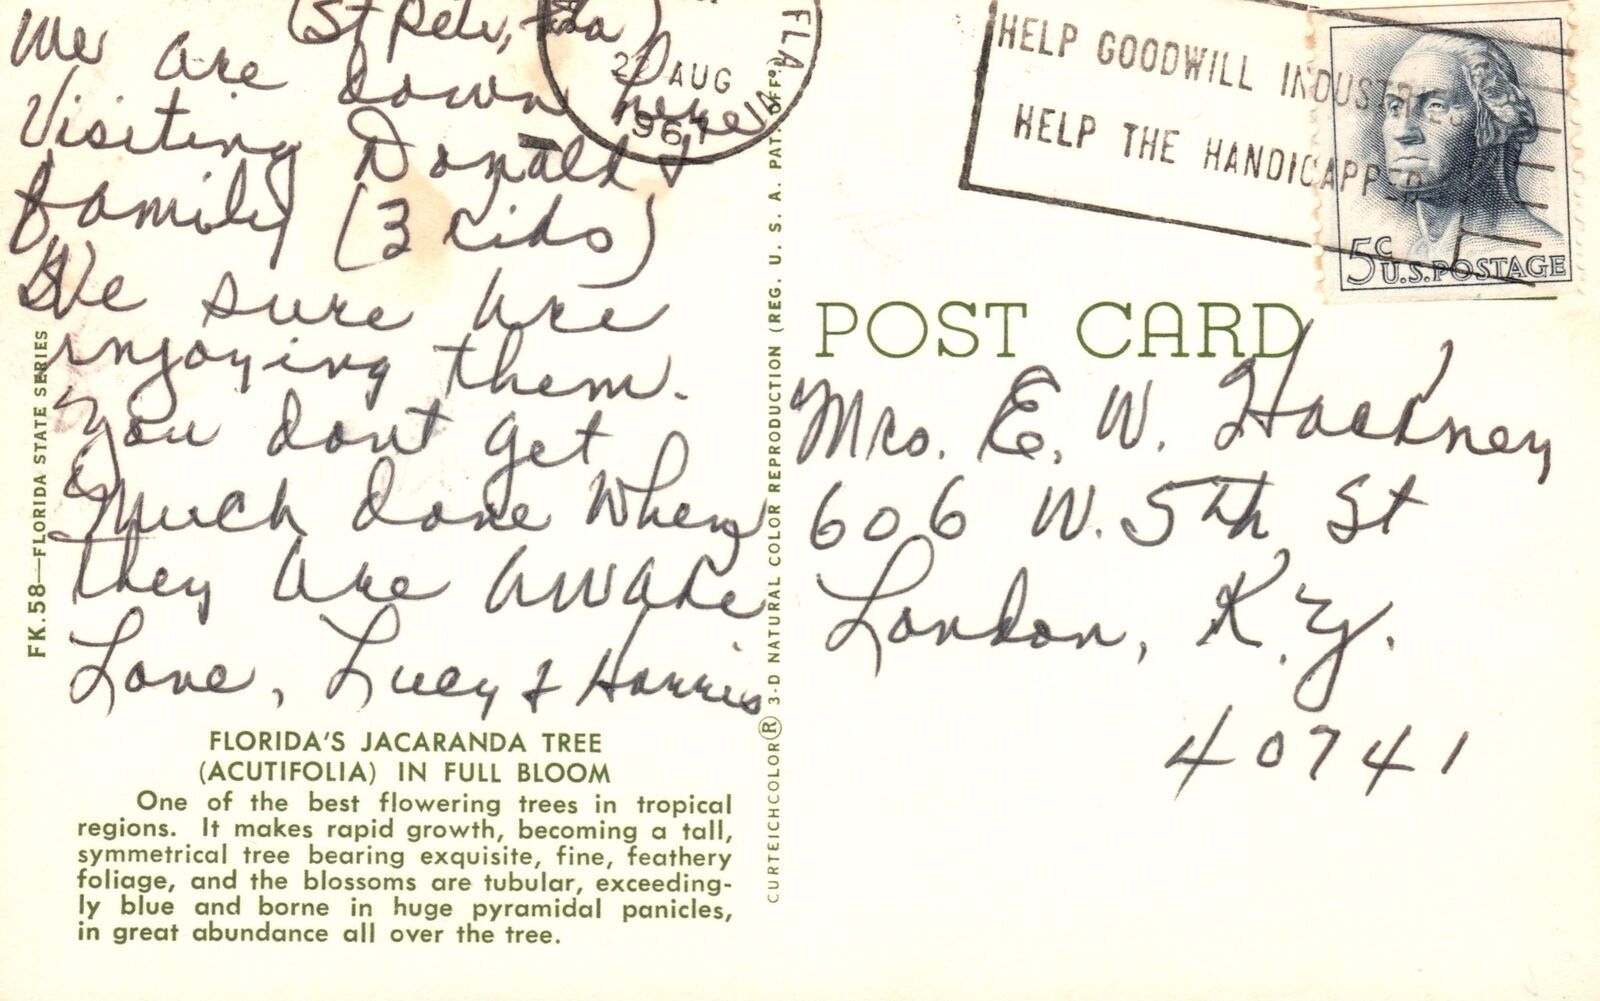 (St Pete, Fla)
We are down here
Visiting Donald &
family (3 kids)
We sure are
enjoying them.
You dont get
much done when
they are awake
Love, Lucy & Harris
FLORIDA'S JACARANDA TREE
(ACUTIFOLIA) IN FULL BLOOM
One of the best flowering trees in tropical
regions. It makes rapid growth, becoming a tall,
symmetrical tree bearing exquisite, fine, feathery
foliage, and the blossoms are tubular, exceeding-
ly blue and borne in huge pyramidal panicles,
in great abundance all over the tree.
FK.58—FLORIDA STATE SERIES
CURTEICHCOLOR® 3-D NATURAL COLOR REPRODUCTION (REG. U. S. A. PAT. OFF.)
FLA
AUG
1967
HELP GOODWILL INDUSTRIES
HELP THE HANDICAPPED
5c
U.S.POSTAGE
POST CARD
Mrs. E. W. Hackney
606 W. 5th St
London, Ky.
40741